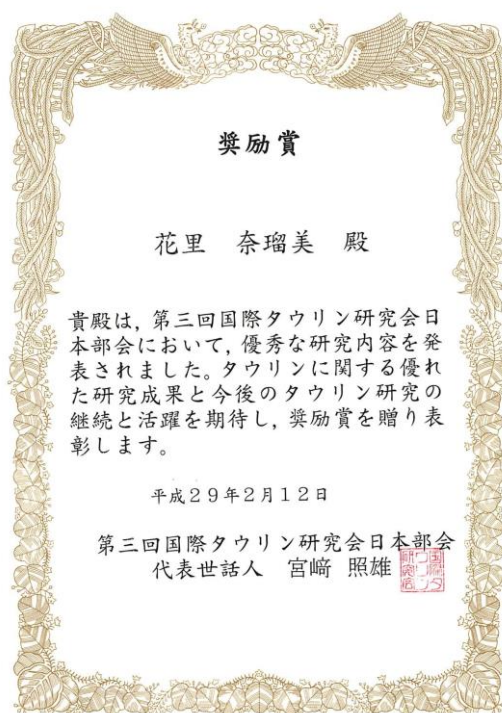 奨励賞
花里 奈瑠美 殿
貴殿は，第三回国際タウリン研究会日
本部会において，優秀な研究内容を発
表されました。タウリンに関する優れ
た研究成果と今後のタウリン研究の
継続と活躍を期待し，奨励賞を贈り表
彰します。
平成29年2月12日
第三回国際タウリン研究会日本部会
代表世話人 宮﨑 照雄